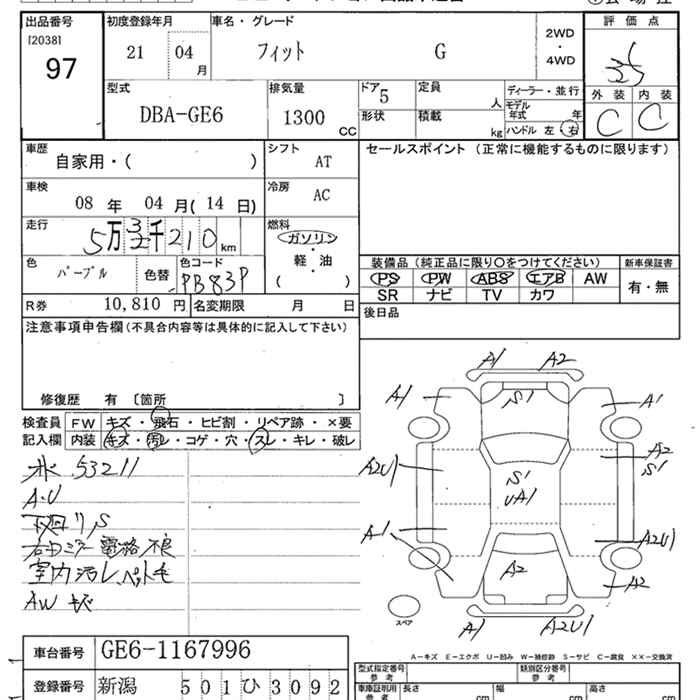 出品番号 初度登録年月 車名・グレード 2WD・4WD 評価点
[2038] 97 21 04月 フィット G 3.5
外装 内装
C C
型式 DBA-GE6 排気量 1300 CC
ドア 5 定員 人 ディーラー・並行
形状 積載 kg モデル年式 年
ハンドル 左・右
車歴 自家用・( ) シフト AT
セールスポイント (正常に機能するものに限ります)
車検 08年 04月(14日) 冷房 AC
走行 5万3千210km
燃料 ガソリン 軽・油 ( )
色 パープル 色替 色コード PB83P
装備品 (純正品に限り○をつけてください) 新車保証書
PS PW ABS エアB AW 有・無
SR ナビ TV カワ
R券 10,810 円 名変期限 月 日
後日品
注意事項申告欄(不具合内容等は具体的に記入して下さい)
修復歴 有 〔箇所 〕
検査員記入欄
FW キズ・飛石・ヒビ割・リペア跡・×要
内装 キズ・汚レ・コゲ・穴・スレ・キレ・破レ
53211
A・U
下廻りS
右ミラー電格不良
室内汚レ、ペット毛
AW キズ
A1 A2
A1 S1 A1
A2 S1
A2U1 S1
UA1
A1 A2U1
A2 A2
A1 A2U1
スペア
A-キズ E-エクボ U-凹み W-補修跡 S-サビ C-腐食 ××-交換済
車台番号 GE6-1167996
型式指定番号 参考 類別区分番号 参考
登録番号 新潟 501 ひ 3092
車庫証明用 参考 長さ cm 幅 cm 高さ cm